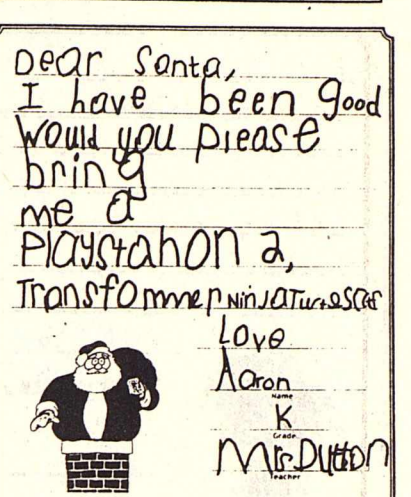 Dear Santa,
I have been good
Would you please
bring
me a
Playstahon 2,
Transfommer Ninja Turtes
Love
Aaron
Name
K
Grade
Mrs. Dutton
Teacher